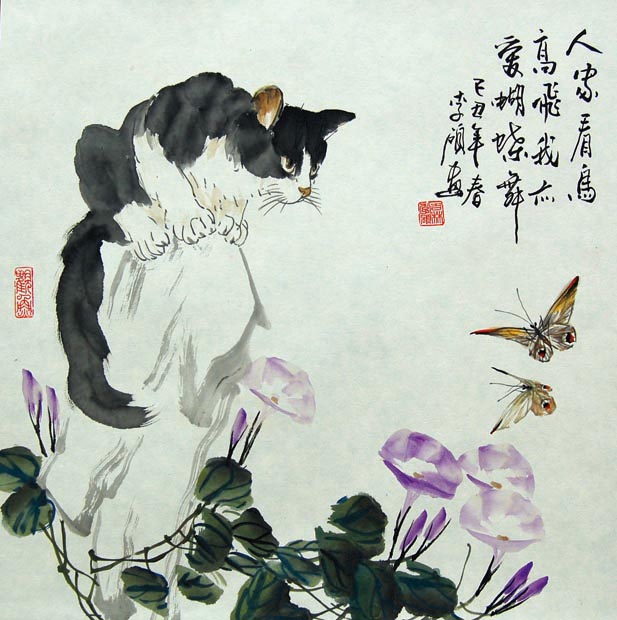 人家看鳥
高飛我亦
愛蝴蝶舞
己丑年春
李碩畫